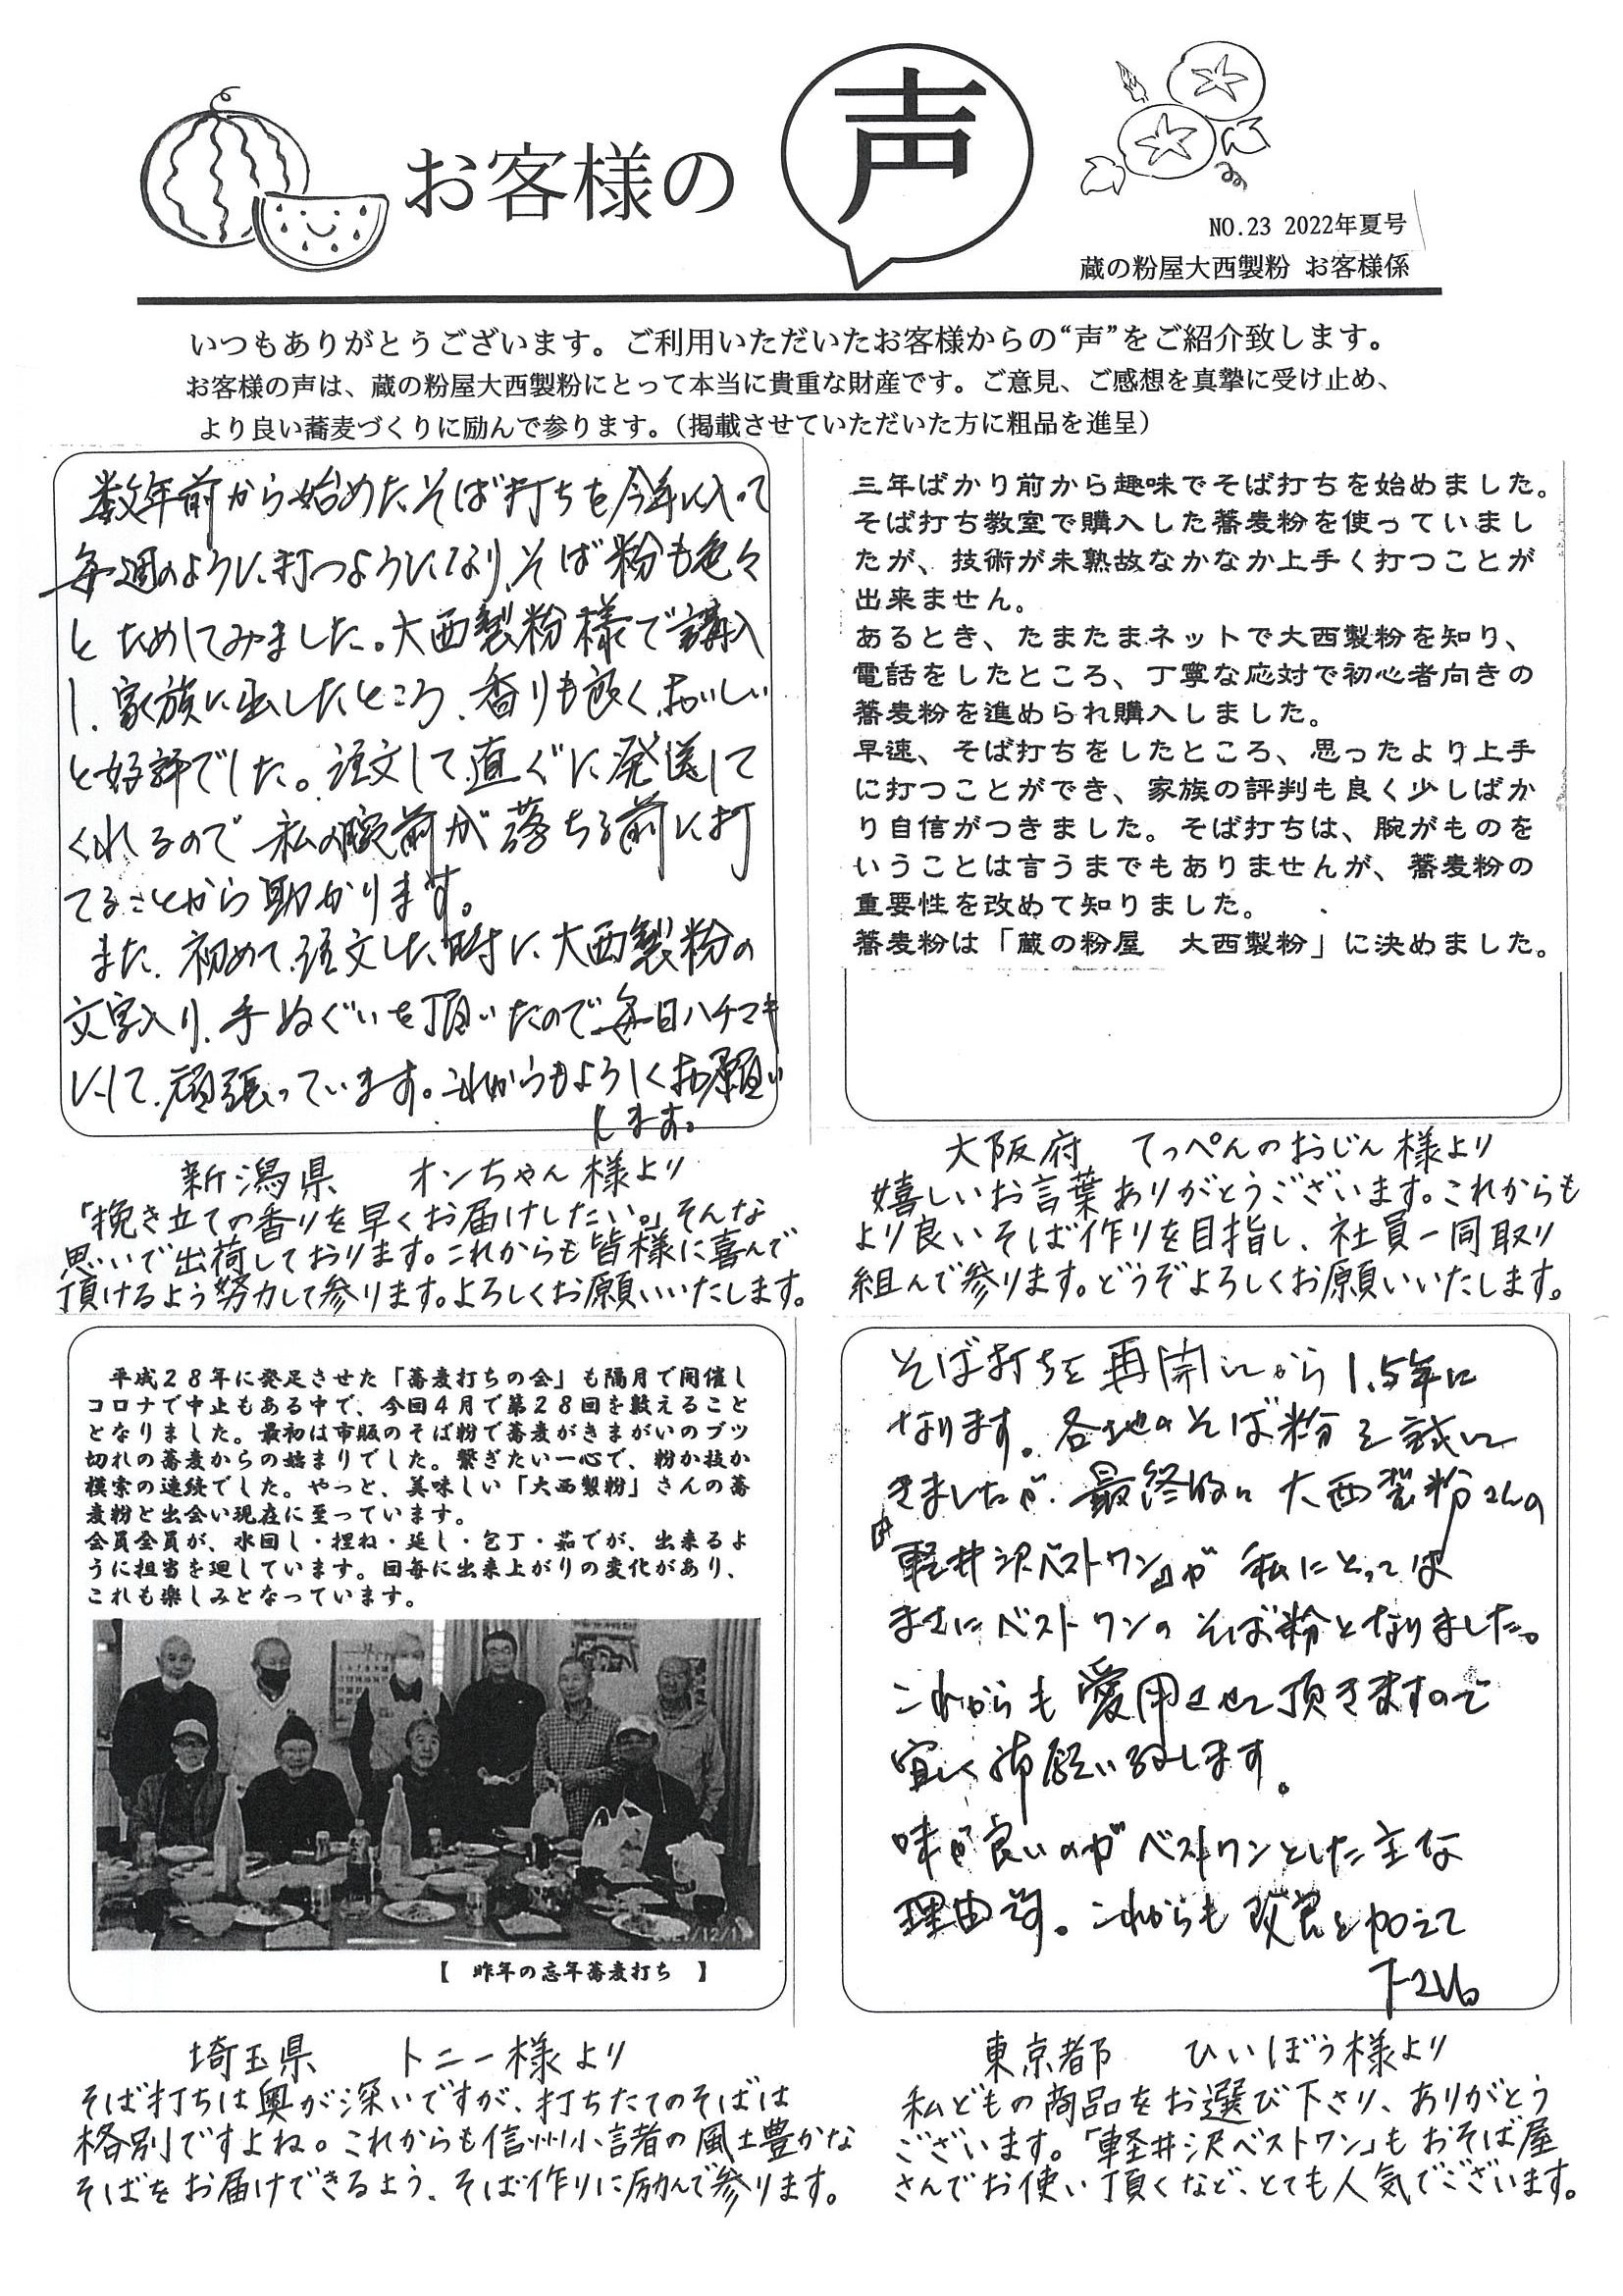 お客様の
声
NO.23 2022年夏号
蔵の粉屋大西製粉 お客様係
いつもありがとうございます。ご利用いただいたお客様からの“声”をご紹介致します。
お客様の声は、蔵の粉屋大西製粉にとって本当に貴重な財産です。ご意見、ご感想を真摯に受け止め、
より良い蕎麦づくりに励んで参ります。（掲載させていただいた方に粗品を進呈）
数年前から始めたそば打ちを今年に入って
毎週のように打つようになり、そば粉も色々
と ためしてみました。大西製粉様で購入
し、家族に出したところ、香りも良く、おいしい
と好評でした。注文して、直ぐに発送して
くれるので 私の腕前が落ちる前に打
てることから助かります。
また、初めて注文した時に大西製粉の
文字入り、手ぬぐいを頂いたので毎日ハチマキ
にして、頑張っています。これからもよろしくお願い
します。
新潟県　オンちゃん様より
「挽き立ての香りを早くお届けしたい。」そんな
思いで出荷しております。これからも皆様に喜んで
頂けるよう努力して参ります。よろしくお願いいたします。
三年ばかり前から趣味でそば打ちを始めました。
そば打ち教室で購入した蕎麦粉を使っていまし
たが、技術が未熟故なかなか上手く打つことが
出来ません。
あるとき、たまたまネットで大西製粉を知り、
電話をしたところ、丁寧な応対で初心者向きの
蕎麦粉を進められ購入しました。
早速、そば打ちをしたところ、思ったより上手
に打つことができ、家族の評判も良く少しばか
り自信がつきました。そば打ちは、腕がものを
いうことは言うまでもありませんが、蕎麦粉の
重要性を改めて知りました。
蕎麦粉は「蔵の粉屋　大西製粉」に決めました。
大阪府　てっぺんのおじん様より
嬉しいお言葉ありがとうございます。これからも
より良いそば作りを目指し、社員一同取り
組んで参ります。どうぞよろしくお願いいたします。
平成２８年に発足させた「蕎麦打ちの会」も隔月で開催し
コロナで中止もある中で、今回４月で第２８回を数えること
となりました。最初は市販のそば粉で蕎麦がきまがいのブツ
切れの蕎麦からの始まりでした。繋ぎたい一心で、粉か技か
模索の連続でした。やっと、美味しい「大西製粉」さんの蕎
麦粉と出会い現在に至っています。
会員全員が、水回し・捏ね・延し・包丁・茹でが、出来るよ
うに担当を廻しています。回毎に出来上がりの変化があり、
これも楽しみとなっています。
【　昨年の忘年蕎麦打ち　】
埼玉県　トニー様より
そば打ちは奥が深いですが、打ちたてのそばは
格別ですよね。これからも信州小諸の風土豊かな
そばをお届けできるよう、そば作りに励んで参ります。
そば打ちを再開してから1.5年に
なります。各地のそば粉を試して
きましたが、最終的に大西製粉さんの
『軽井沢ベストワン』が 私にとっては
まさにベストワンの そば粉となりました。
これからも愛用させて頂きますので
宜しく御願い致します。
味が良いのがベストワンとした主な
理由です。これからも改良を加えて
下さい。
東京都　ひいぼう様より
私どもの商品をお選び下さり、ありがとう
ございます。「軽井沢ベストワン」もおそば屋
さんでお使い頂くなど、とても人気でございます。